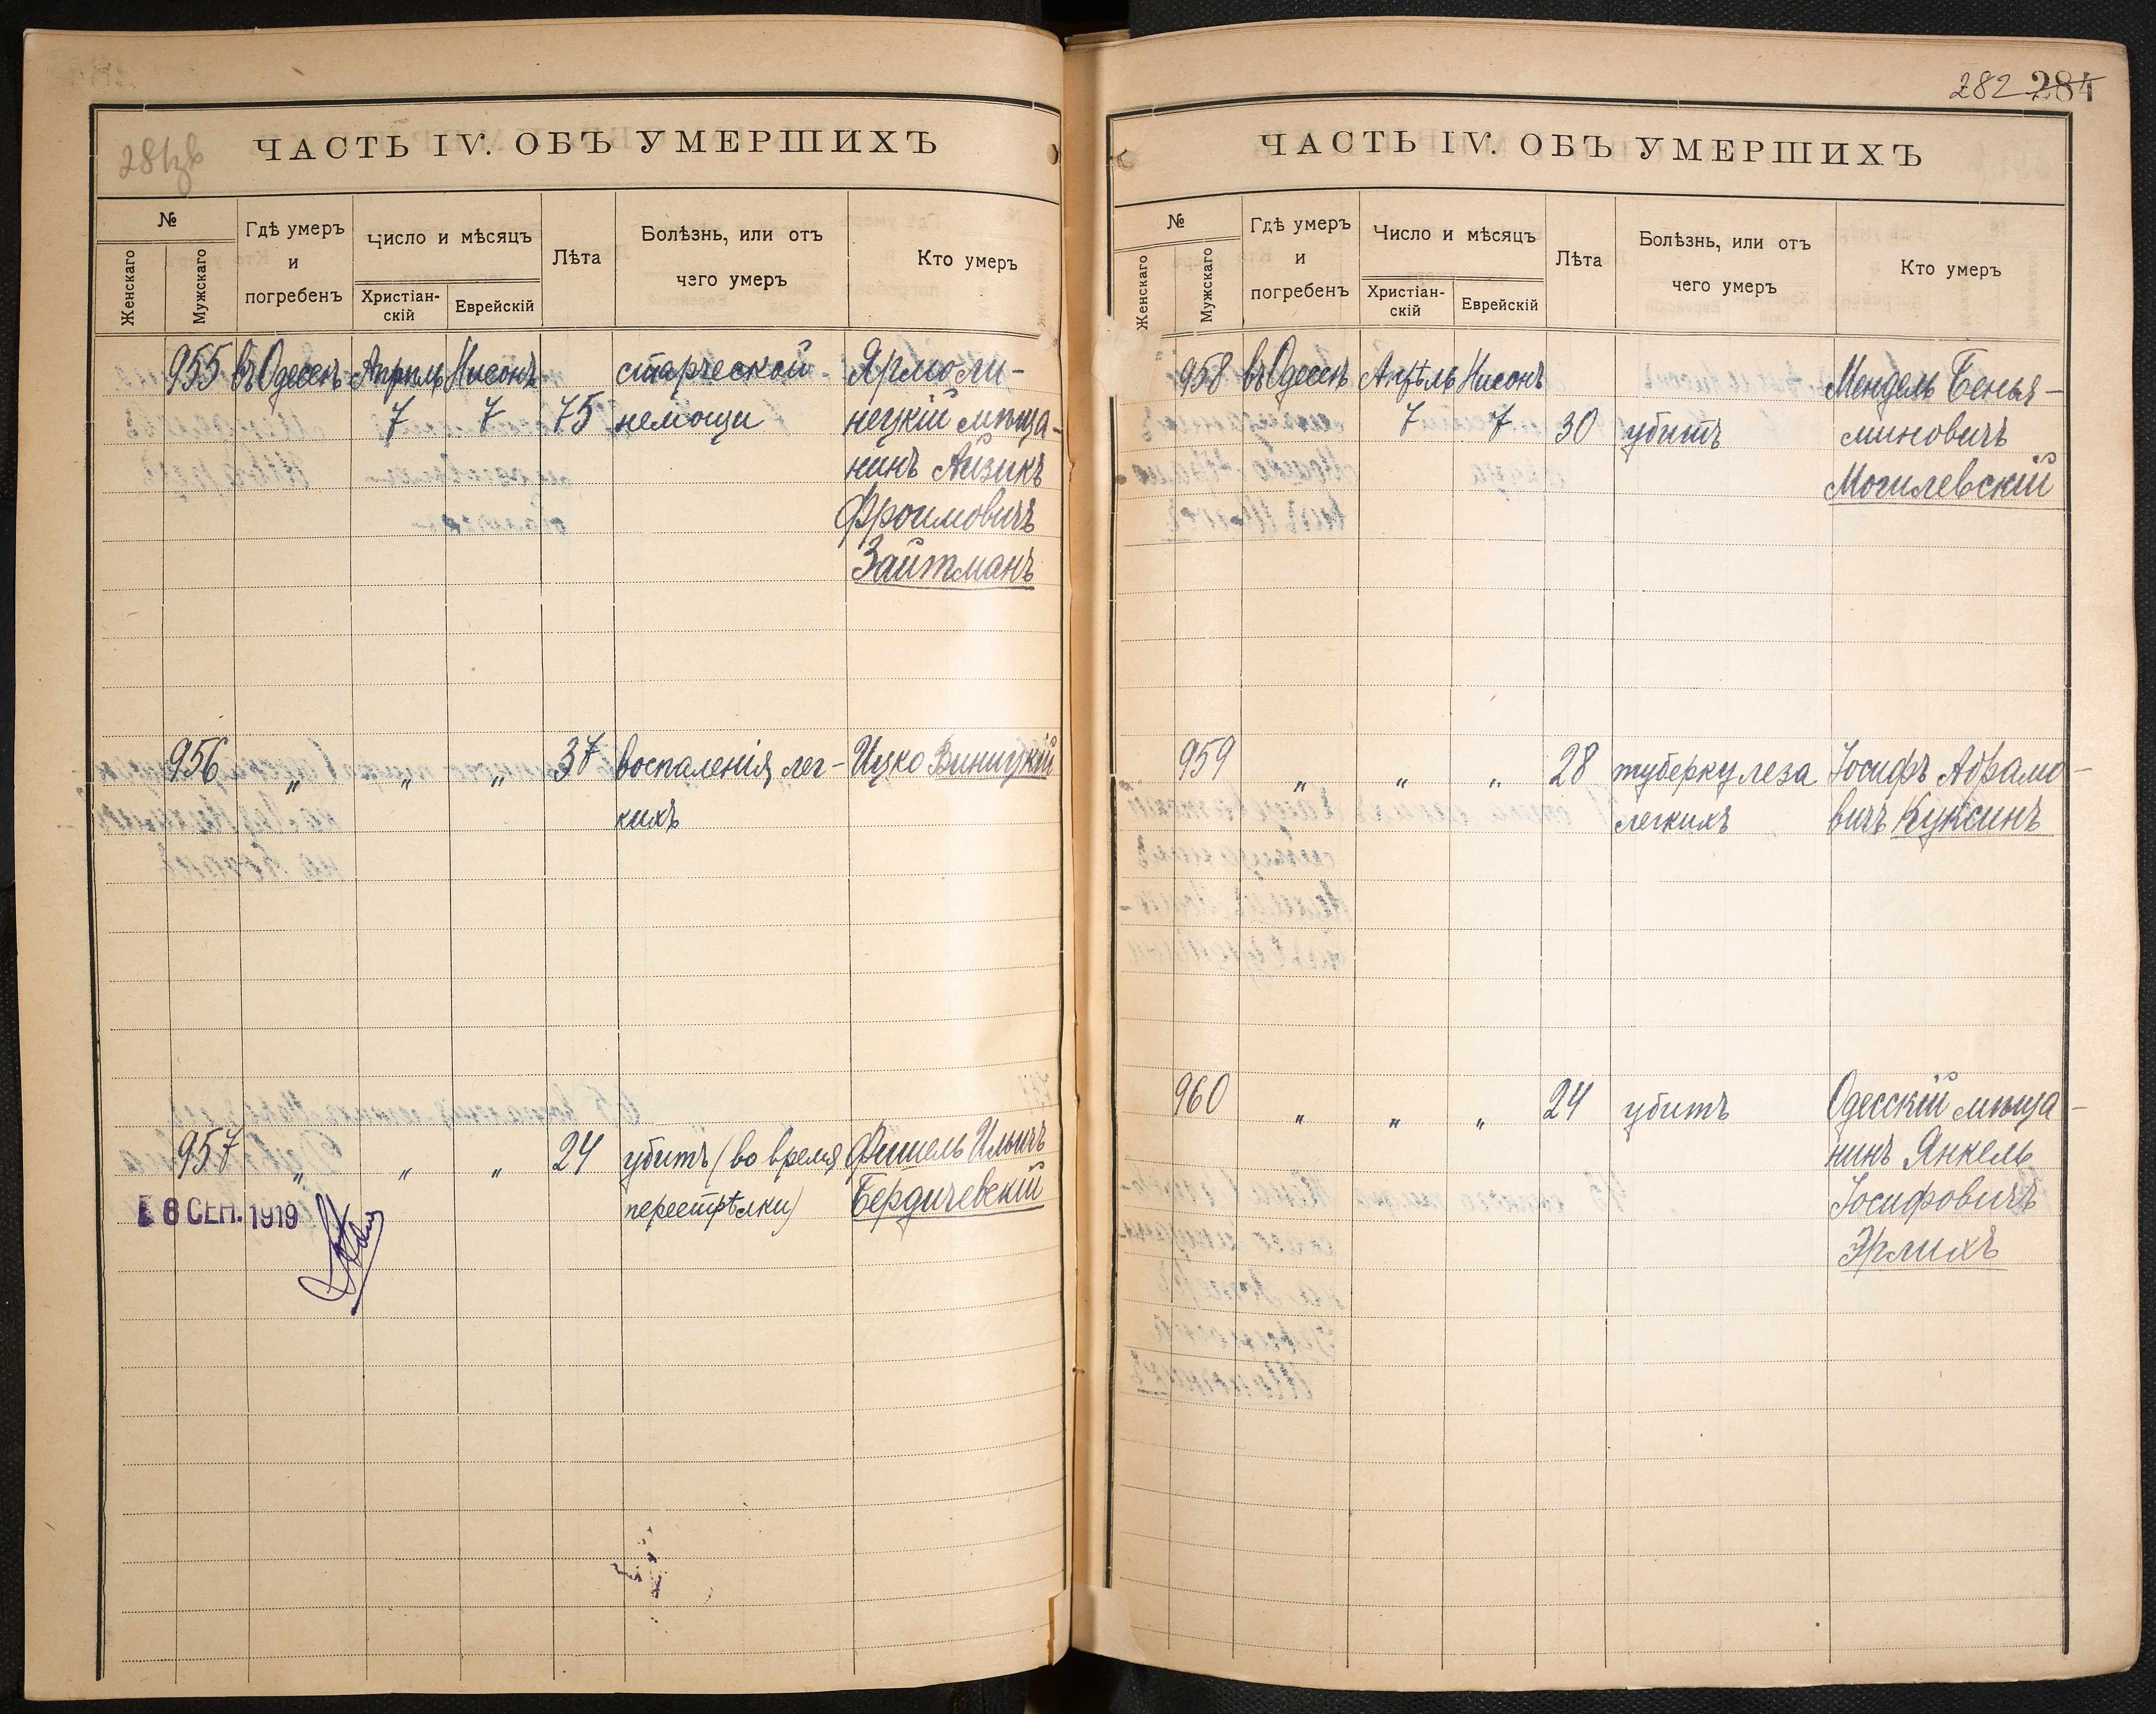 281зв
ЧАСТЬ IV. ОБЪ УМЕРШИХЪ
№
Женскаго
Мужскаго
Гдѣ умеръ
и
погребенъ
Число и мѣсяцъ
Христіан-
скій
Еврейскій
Лѣта
Болѣзнь, или отъ
чего умеръ
Кто умеръ
955 въ Одессѣ Апрѣль Нисонъ старческой Ярмоли-
7 7 75 немощи нецкій мѣща-
нинъ Айзикъ
Фроимовичъ
Зайтманъ
956 „ „ „ 37 воспаленія лег- Ицко Виницкій
кихъ
957 „ „ „ 24 убитъ (во время Фишель Ильичъ
перестрѣлки) Бердичевскій
8 СЕН. 1919
282 284
ЧАСТЬ IV. ОБЪ УМЕРШИХЪ
№
Женскаго
Мужскаго
Гдѣ умеръ
и
погребенъ
Число и мѣсяцъ
Христіан-
скій
Еврейскій
Лѣта
Болѣзнь, или отъ
чего умеръ
Кто умеръ
958 въ Одессѣ Апрѣль Нисонъ Мендель Бенья-
7 7 30 убитъ миновичъ
Могилевскій
959 „ „ „ 28 туберкулеза Іосифъ Абрамо-
легкихъ вичъ Куксинъ
960 „ „ „ 24 убитъ Одесскій мѣща-
нинъ Янкель
Іосифовичъ
Эрлихъ